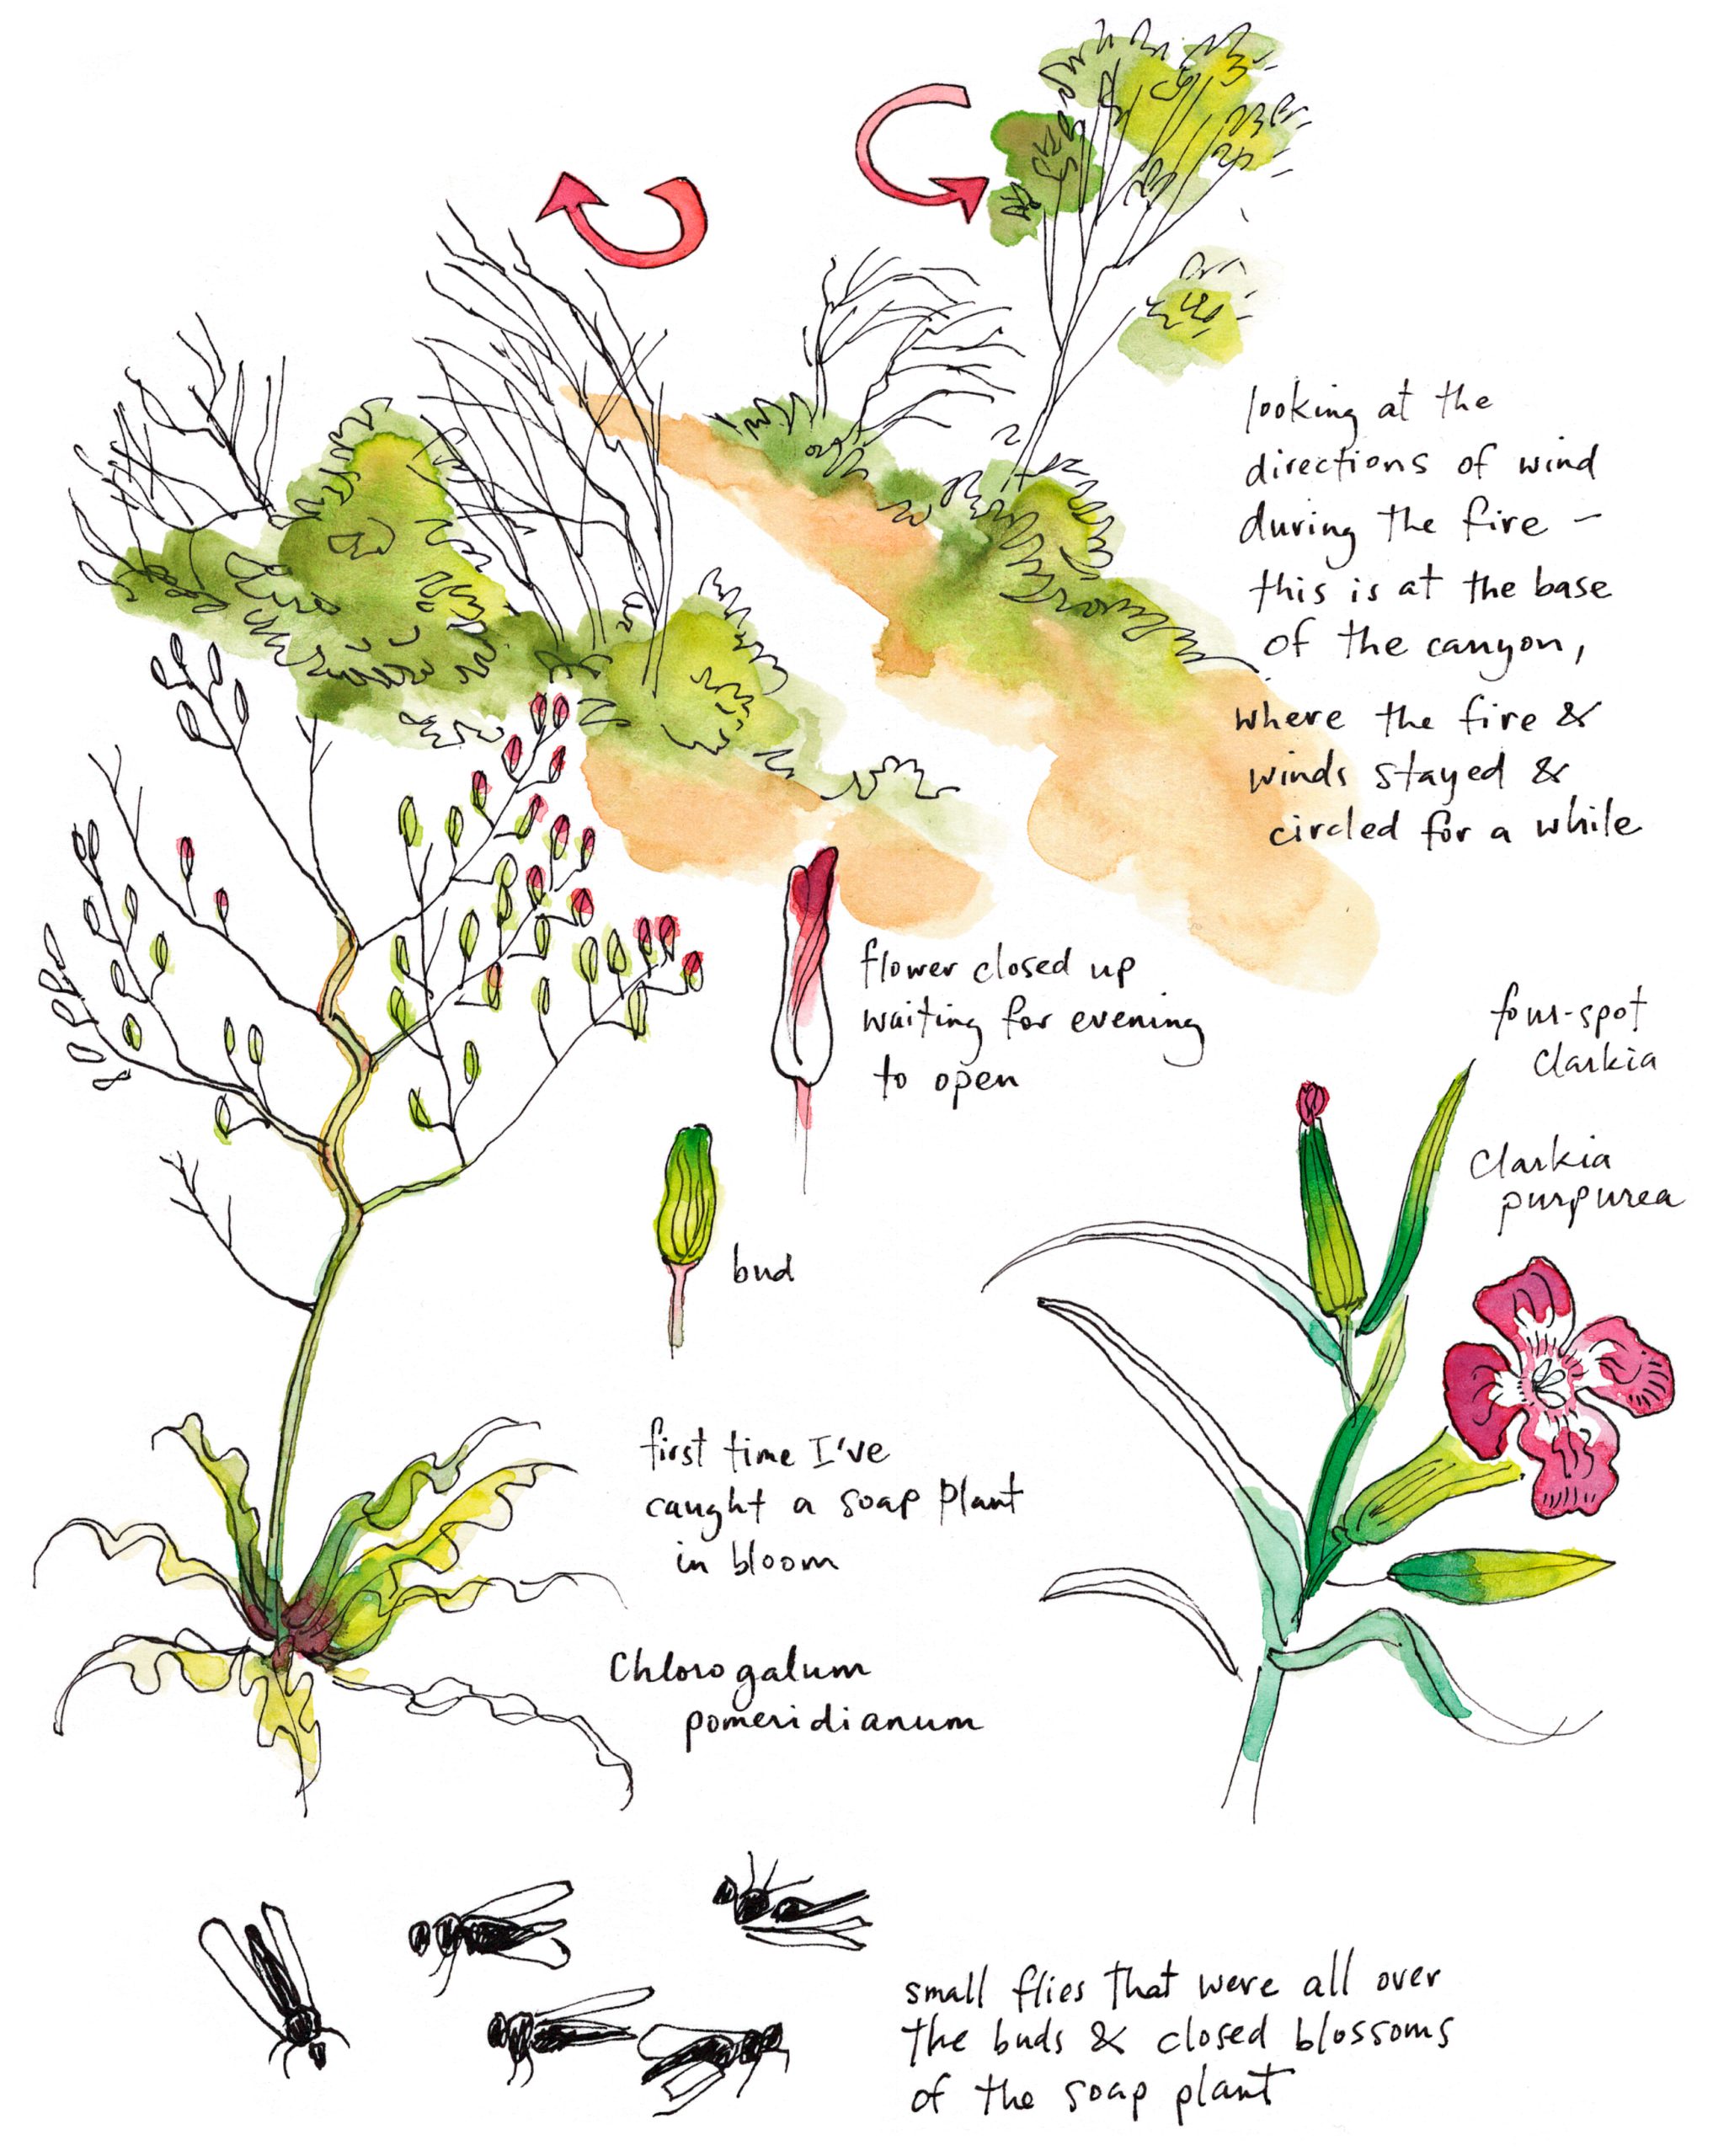 looking at the
directions of wind
during the fire –
this is at the base
of the canyon,
where the fire &
winds stayed &
circled for a while
flower closed up
waiting for evening
to open
bud
four-spot
Clarkia
Clarkia
purpurea
first time I've
caught a soap plant
in bloom
Chlorogalum
pomeridianum
small flies that were all over
the buds & closed blossoms
of the soap plant